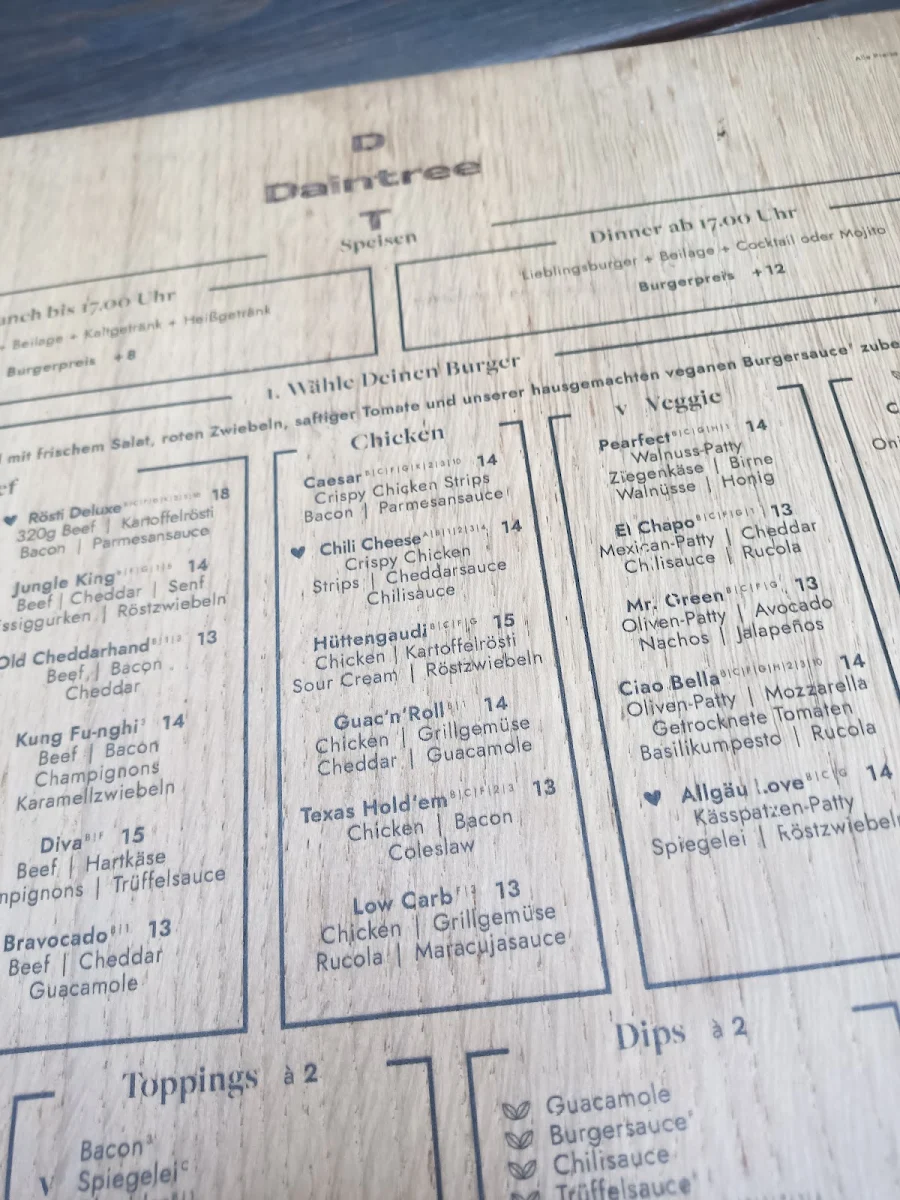 D
Daintree
T
Speisen
bis 17.00 Uhr
+ Beilage + Kaltgetränk + Heißgetränk
Burgerpreis +8
Dinner ab 17.00 Uhr
Lieblingsburger + Beilage + Cocktail oder Mojito
Burgerpreis +12
1. Wähle Deinen Burger
mit frischem Salat, roten Zwiebeln, saftiger Tomate und unserer hausgemachten veganen Burgersauce
Rösti Deluxe 18
320g Beef | Kartoffelrösti
Bacon | Parmesansauce
Jungle King 14
Beef | Cheddar | Senf
| Röstzwiebeln
Old Cheddarhand 13
Beef | Bacon
Cheddar
Kung Fu-nghi³ 14
Beef | Bacon
Champignons
Karamellzwiebeln
Diva 15
Beef | Hartkäse
| Trüffelsauce
Bravocado 13
Beef | Cheddar
Guacamole
Chicken
Caesar 14
Crispy Chicken Strips
Bacon | Parmesansauce
Chili Cheese 14
Crispy Chicken
Strips | Cheddarsauce
Chilisauce
Hüttengaudi 15
Chicken | Kartoffelrösti
Sour Cream | Röstzwiebeln
Guac'n'Roll 14
Chicken | Grillgemüse
Cheddar | Guacamole
Texas Hold'em 13
Chicken | Bacon
Coleslaw
Low Carb 13
Chicken | Grillgemüse
Rucola | Maracujasauce
V Veggie
Pearfect 14
Walnuss-Patty
Ziegenkäse | Birne
Walnüsse | Honig
El Chapo 13
Mexican-Patty | Cheddar
Chilisauce | Rucola
Mr. Green 13
Oliven-Patty | Avocado
Nachos | Jalapeños
Ciao Bella 14
Oliven-Patty | Mozzarella
Getrocknete Tomaten
Basilikumpesto | Rucola
Allgäu Love 14
Kässpatzen-Patty
Spiegelei | Röstzwiebeln
Toppings à 2
Bacon³
V Spiegelei
Dips à 2
Guacamole
Burgersauce
Chilisauce
Trüffelsauce